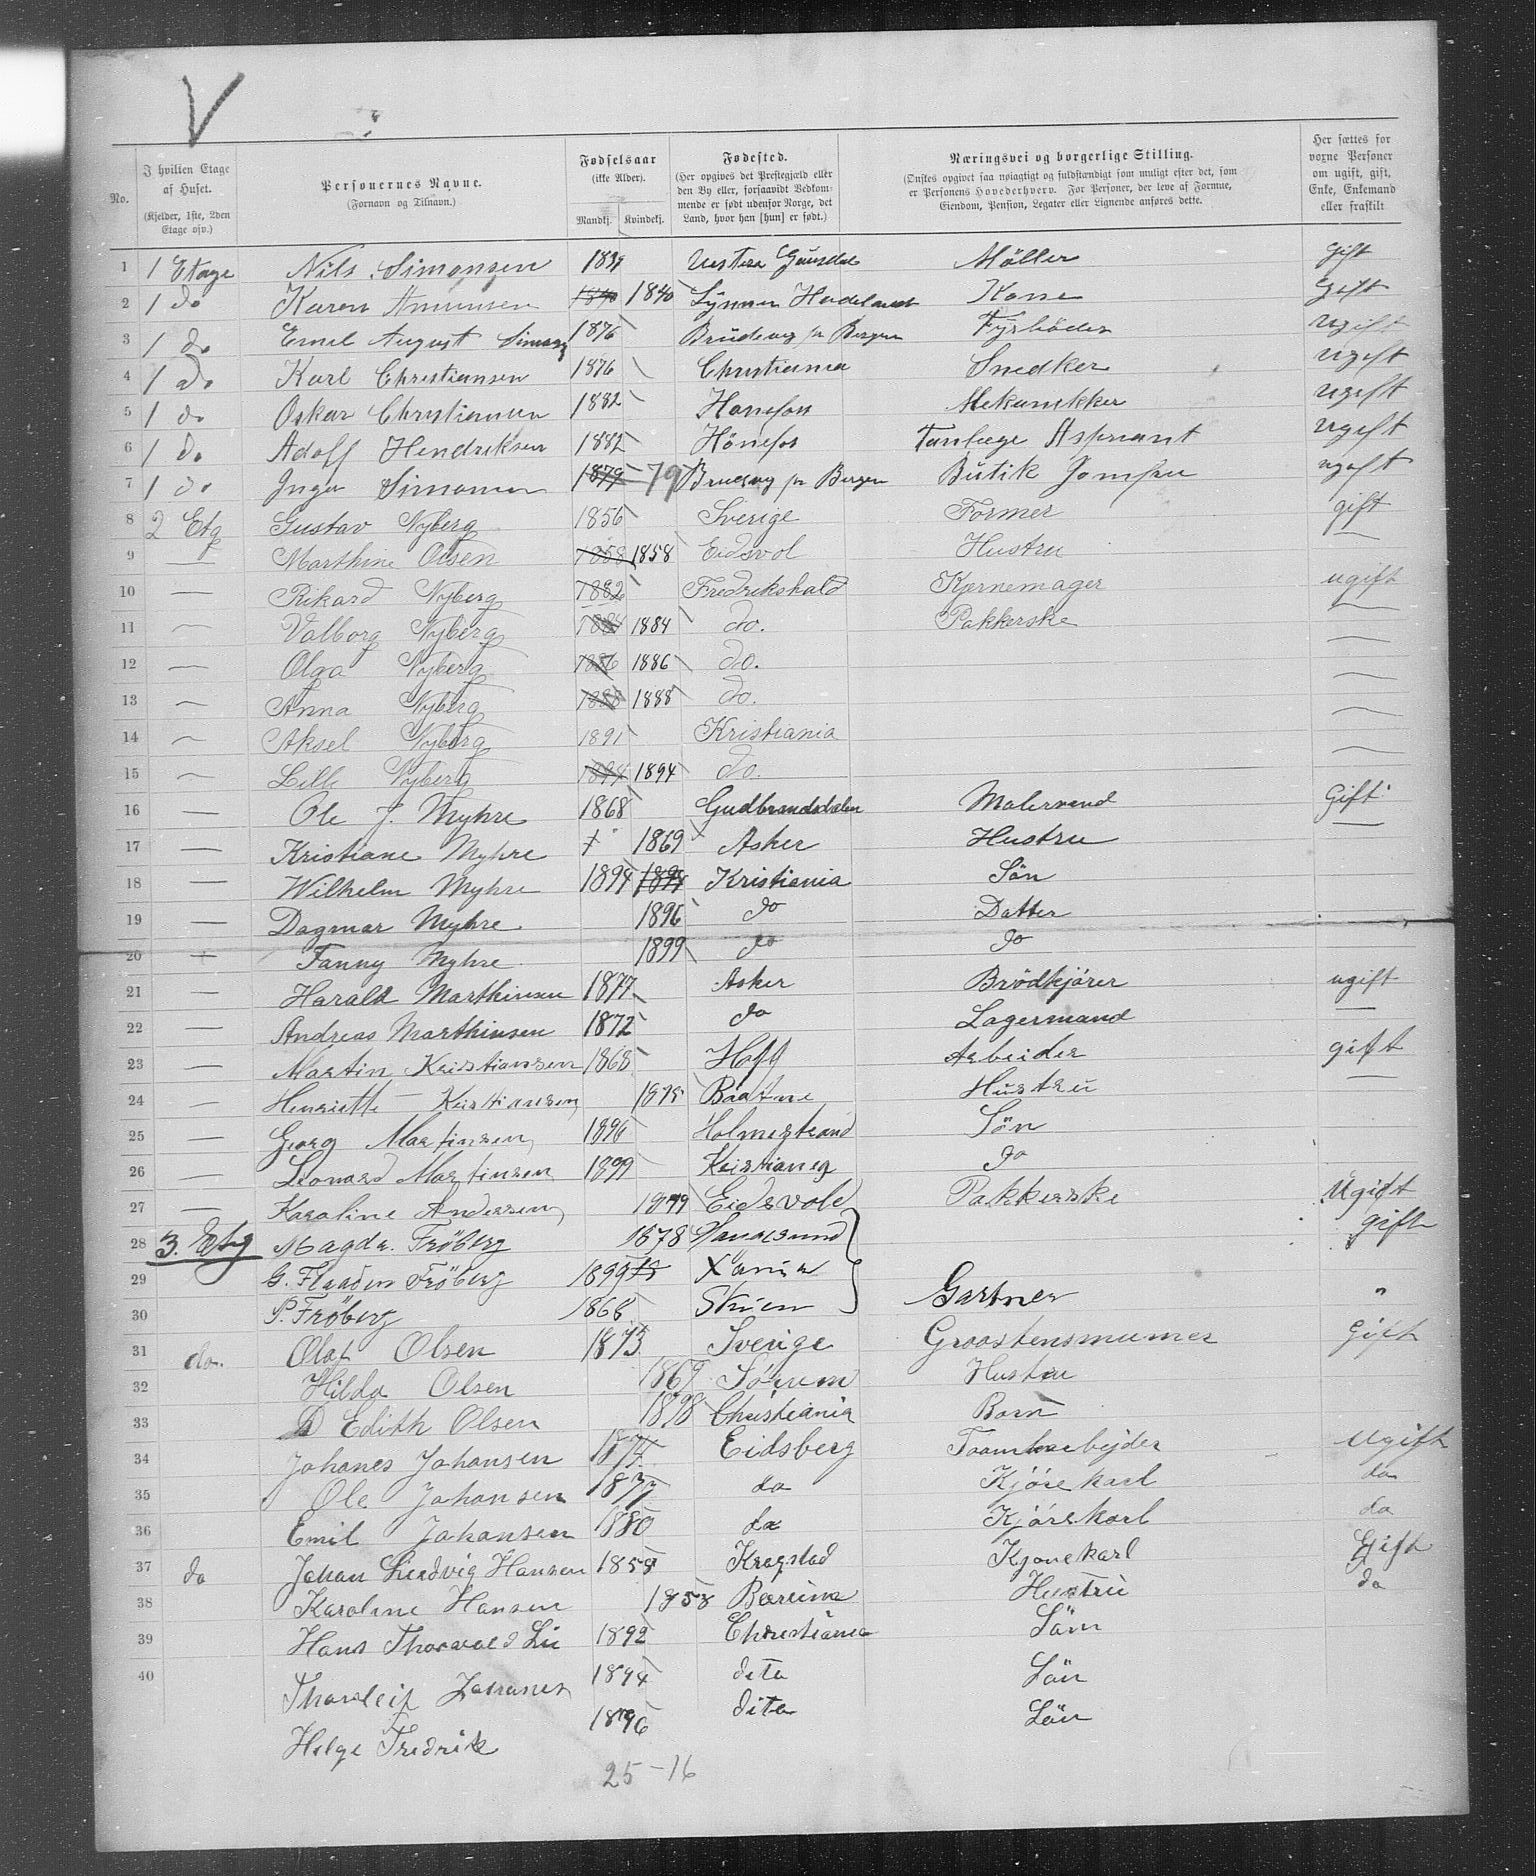 V
No. I hvilken Etage af Huset. (Kjelder, 1ste, 2den Etage osv.) Personernes Navne. (Fornavn og Tilnavn.) Fødselsaar (ikke Alder). Mandkj. Kvindekj. Fødested. (Her opgives det Prestegjæld eller den By eller, forsaavidt Vedkommende er født udenfor Norge, det Land, hvor han [hun] er født.) Næringsvei og borgerlige Stilling. (Ønskes opgivet saa nøiagtigt og fuldstændigt som muligt efter det, som er Personens Hovederhverv. For Personer, der leve af Formue, Eiendom, Pension, Legater eller Lignende anføres dette.) Her sættes for voxne Personer om ugift, gift, Enke, Enkemand eller fraskilt
1 1 Etage Nils Simonsen Gausdal Möller Gift
2 1 do Karen Amunsen 1840 1840 Hadeland Kone Gift
3 1 do Emil August 1876 Brudevig pr Bergen Fyrböder ugift
4 1 do Karl Christiansen 1876 Christiania Snedker ugift
5 1 do Oskar Christiansen 1882 Hönefoss Mekanikker ugift
6 1 do Adolf Hendriksen 1882 Hönefos Aspirant ugift
7 1 do Inga Simonsen 1879 79 pr Bergen Butik Jomfru ugift
8 2 Etg Gustav Nyberg 1856 Sverige Former gift
9 — Marthine Olsen 1858 1858 Eidsvol Hustru —
10 — Rikard Nyberg 1882 Fredrikshald Kjernemager ugift
11 — Valborg Nyberg 1884 1884 do. Pakkerske —
12 — Olga Nyberg 1886 1886 do. —
13 — Anna Nyberg 1888 1888 do. —
14 — Aksel Nyberg 1891 Kristiania —
15 — Lilli Nyberg 1894 1894 do. —
16 — Ole J. Myhre 1868 Gudbrandsdalen Malersvend Gift
17 — Kristiane Myhre 1869 Asker Hustru —
18 — Wilhelm Myhre 1894 1894 Kristiania Sön
19 — Dagmar Myhre 1896 do Datter
20 — Fanny Myhre 1899 do do
21 — Harald Marthinsen 1877 Asker Brödkjörer ugift
22 — Andreas Marthinsen 1872 do Lagermand —
23 — Martin Kristiansen 1868 Hoff Arbeider gift
24 — Henriette Kristiansen Hustru —
25 — Georg Martinsen 1896 Holmestrand Sön
26 — Leonard Martinsen 1899 Kristiania do
27 — Karoline Andersen 1879 Eidsvold Pakkerske Ugift
28 3. Etg Magda Fröberg 1878 gift
29 G. Fröberg 1899 Xania
30 P. Fröberg 1868 Skien Gartner "
31 do. Olaf Olsen 1873 Sverige Gift
32 Hilda Olsen 1869 Sörum Hustru
33 Edith Olsen 1898 Christiania Barn
34 Johanes Johansen Eidsberg Ugift
35 Ole Johansen 1877 do Kjörekarl do
36 Emil Johansen 1880 do Kjörekarl do
37 do Johan Ludvig Hansen 1858 Kragstad Kjörekarl Gift
38 Karoline Hansen 1858 Bærum Hustru do
39 Hans Thorvald 1892 Christiania Sön
40 Thorleif Johannes 1894 dito Sön
Helge Fredrik 1896 dito Sön
25 - 16